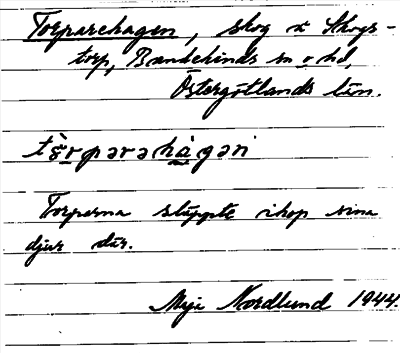 Torparehagen, skog i Skogs-
torp, Bankekinds sn o. hd,
Östergötlands län.
tò̀rparəhàgən
Torparna släppte ihop sina
djur där.
Maja Nordlund 1944.